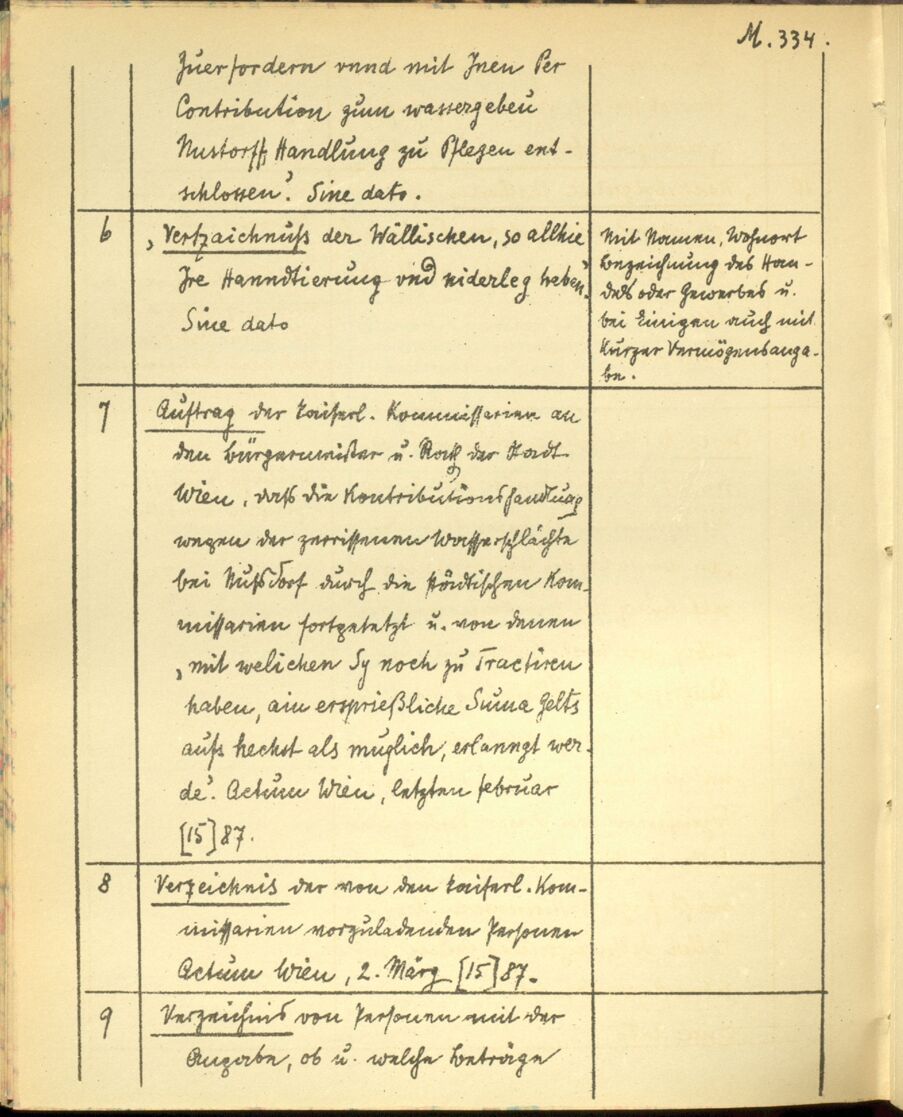 M. 334.
Zuerfordern vnnd mit Jnen Per
Contribution zum wassergebeu
Nustorff Handlung zu Pflegen ent-
schlossen'. Sine dato.
6
‚Vertzaichnuß der Wällischen, so allhie
Jre Hanndtierung vnd niderleg heben'.
Sine dato
Mit Namen, Wohnort
Bezeichnung des Han-
dels oder Gewerbes u.
bei Einigen auch mit
Kurzer Vermögensanga-
be.
7
Auftrag der kaiserl. Kommissarien an
den Bürgermeister u. Rath der Stadt
Wien, daß die Kontributionshandlung
wegen der zerrissenen Wasserschlächte
bei Nußdorf durch die städtischen Kom-
missarien fortgesetzt u. von denen
‚mit welichen Sy noch zu Tractiren
haben, ain ersprießliche Suma Gelts
aufs hechst als muglich, erlanngt wer-
de'. Actum Wien, letzten Februar
[15]87.
8
Verzeichnis der von den kaiserl. Kom-
missarien vorzuladenden Personen
Actum Wien, 2. März [15]87.
9
Verzeichnis von Personen mit der
Angabe, ob u. welche Beträge